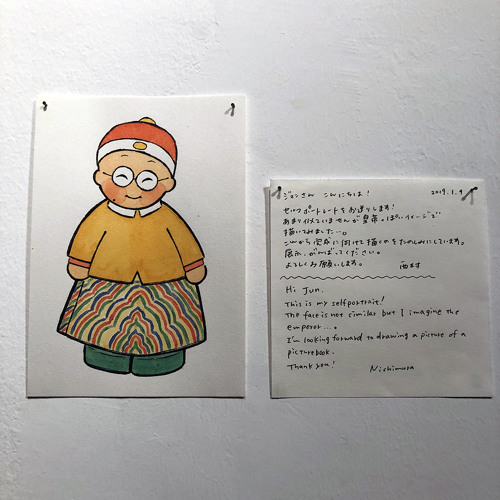 ジュンさん こんにちは! 2019.1.9
セルフポートレートをお送りします!
あまり似ていませんが皇帝っぽいイメージで
描いてみました…。
これから完成に向けて描くのをたのしみにしています。
展示、がんばってください。
よろしくお願いします。 西村
Hi Jun.
This is my selfportrait!
The face is not similar but I imagine the
emperor...。
I'm looking forward to drawing a picture of a
picturebook.
Thank you! Nishimura